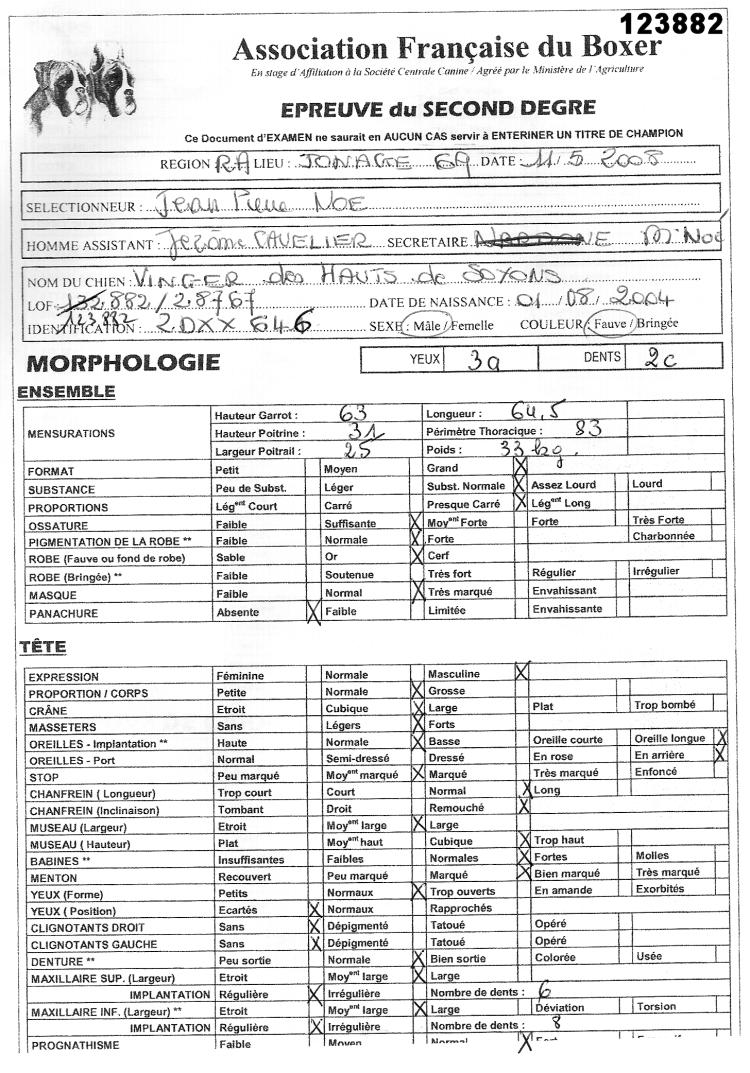 123882
Association Française du Boxer
En stage d'Affiliation à la Société Centrale Canine / Agréé par le Ministère de l'Agriculture
EPREUVE du SECOND DEGRE
Ce Document d'EXAMEN ne saurait en AUCUN CAS servir à ENTERINER UN TITRE DE CHAMPION
REGION RA LIEU : JONAGE 69 DATE : 11/5 2008
SELECTIONNEUR : Jean Pierre NOE
HOMME ASSISTANT : Jérôme CAVELIER SECRETAIRE M Noé
NOM DU CHIEN : VINGER des HAUTS de SOYONS
LOF : 132.882 / 28767 DATE DE NAISSANCE : 01 / 08 / 2004
123 882
IDENTIFICATION : 2DXX 646 SEXE : Mâle / Femelle COULEUR : Fauve / Bringée
MORPHOLOGIE YEUX 3a DENTS 2c
ENSEMBLE
MENSURATIONS Hauteur Garrot : 63 Longueur : 64,5
Hauteur Poitrine : 31 Périmètre Thoracique : 83
Largeur Poitrail : 25 Poids : 33 kg.
FORMAT Petit Moyen Grand X
SUBSTANCE Peu de Subst. Léger Subst. Normale X Assez Lourd Lourd
PROPORTIONS Légent Court Carré Presque Carré X Légent Long
OSSATURE Faible Suffisante X Moyent Forte Forte Très Forte
PIGMENTATION DE LA ROBE ** Faible Normale X Forte Charbonnée
ROBE (Fauve ou fond de robe) Sable Or X Cerf
ROBE (Bringée) ** Faible Soutenue Très fort Régulier Irrégulier
MASQUE Faible Normal X Très marqué Envahissant
PANACHURE Absente X Faible Limitée Envahissante
TÊTE
EXPRESSION Féminine Normale Masculine X
PROPORTION / CORPS Petite Normale X Grosse
CRÂNE Etroit Cubique X Large Plat Trop bombé
MASSETERS Sans Légers X Forts
OREILLES - Implantation ** Haute Normale X Basse Oreille courte Oreille longue X
OREILLES - Port Normal Semi-dressé Dressé En rose En arrière X
STOP Peu marqué Moyent marqué X Marqué Très marqué Enfoncé
CHANFREIN ( Longueur) Trop court Court Normal X Long
CHANFREIN (Inclinaison) Tombant Droit Remouché X
MUSEAU (Largeur) Etroit Moyent large X Large
MUSEAU ( Hauteur) Plat Moyent haut Cubique X Trop haut
BABINES ** Insuffisantes Faibles Normales X Fortes Molles
MENTON Recouvert Peu marqué Marqué X Bien marqué Très marqué
YEUX (Forme) Petits Normaux X Trop ouverts En amande Exorbités
YEUX ( Position) Ecartés X Normaux Rapprochés
CLIGNOTANTS DROIT Sans X Dépigmenté Tatoué Opéré
CLIGNOTANTS GAUCHE Sans X Dépigmenté Tatoué Opéré
DENTURE ** Peu sortie Normale X Bien sortie Colorée Usée
MAXILLAIRE SUP. (Largeur) Etroit Moyent large X Large
IMPLANTATION Régulière X Irrégulière Nombre de dents : 6
MAXILLAIRE INF. (Largeur) ** Etroit Moyent large X Large Déviation Torsion
IMPLANTATION Régulière X Irrégulière Nombre de dents : 8
PROGNATHISME Faible Moyen Normal X Fort